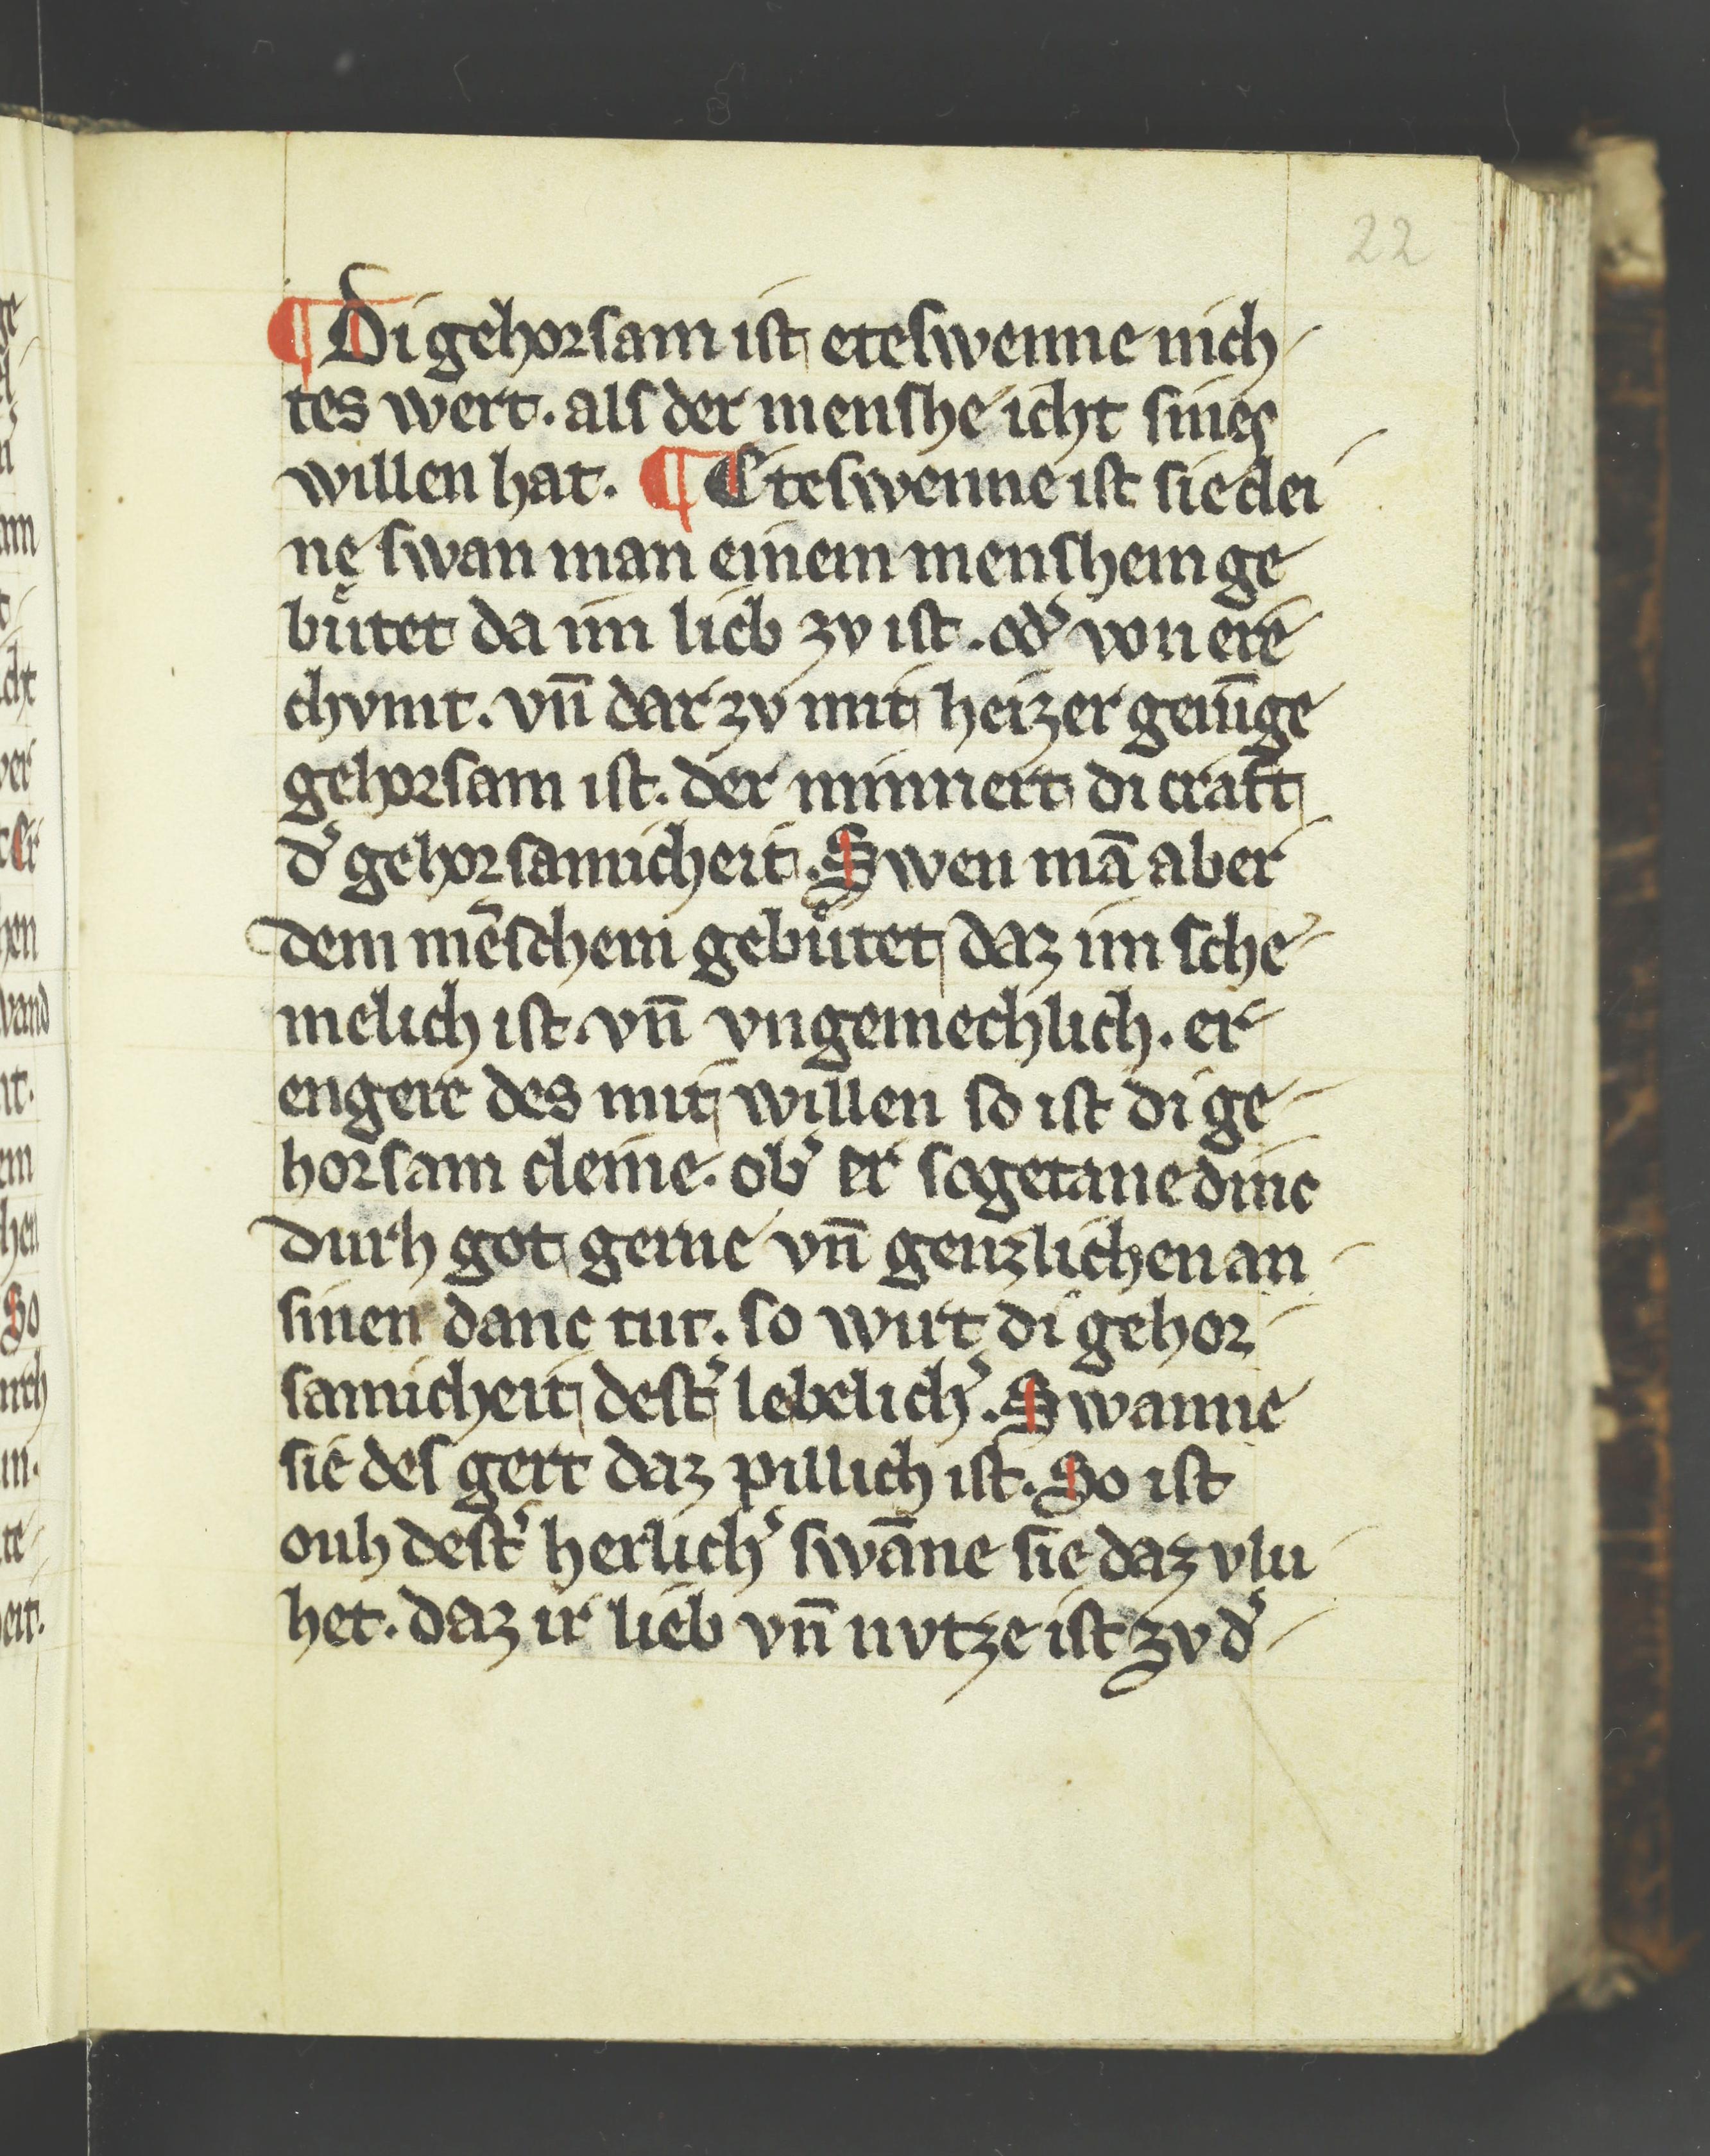 22
¶ Di gehorsam ist eteswenne nich
tes wert. als der menshe icht sines
willen hat. ¶ Eteswenne ist sie clei
ne swan man einem menshem ge
bůtet da im lieb zv ist. od᾽ von ere
chvmt. vn̄ dar zv mit heizer genūge
gehorsam ist. der minnert di craft
d᾽ gehorsamicheit. Swen mā aber
dem mēschem gebůtet daz im sche
melich ist. vn̄ vngemechlich. er
engere des mit willen so ist di ge
horsam cleine. ob᾽ er sogetane dinc
durh got gerne vn̄ genzlichen an
sinen danc tut. so wirt di gehor
samicheit dest᾽ lebelich᾽. Swanne
sie des gert daz pillich ist. So ist
ouh dest᾽ herlich᾽ swāne sie daz vlu
het. daz ir lieb vn̄ nvtze ist zv d᾽